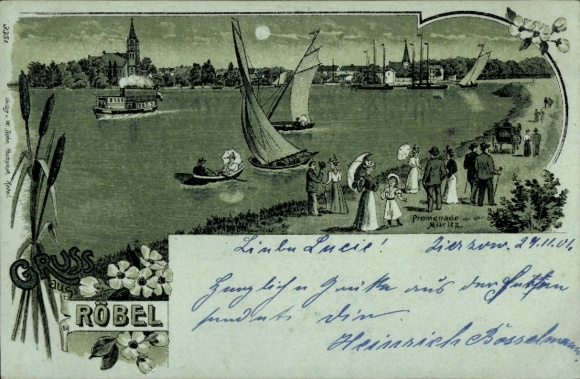 Promenade an der
Müritz.
GRUSS
aus
RÖBEL
Liebe Lucie! Zierzow. 29.11.01.
Herzliche Grüße aus der
sendet Dir
Heinrich Bösselmann